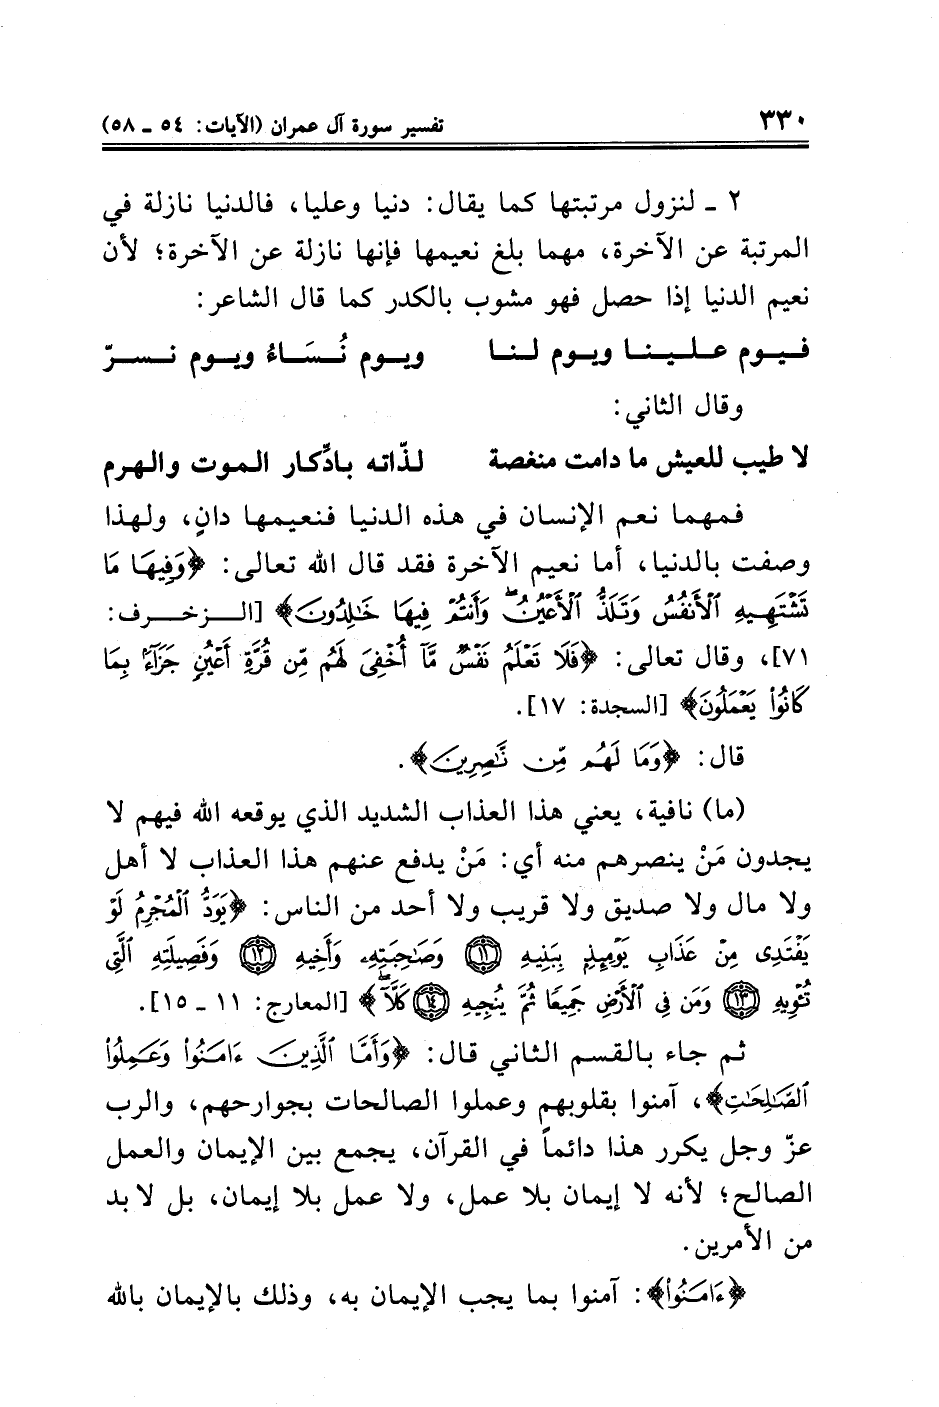 ٣٣٠ تفسير سورة آل عمران (الآيات: ٥٤ ـ ٥٨)
٢ ـ لنزول مرتبتها كما يقال: دنيا وعليا، فالدنيا نازلة في
المرتبة عن الآخرة، مهما بلغ نعيمها فإنها نازلة عن الآخرة؛ لأن
نعيم الدنيا إذا حصل فهو مشوب بالكدر كما قال الشاعر:
فيوم علينا ويوم لنا ويوم نُسَاءُ ويوم نسرّ
وقال الثاني:
لا طيب للعيش ما دامت منغصة لذّاته بادّكار الموت والهرم
فمهما نعم الإنسان في هذه الدنيا فنعيمها دانٍ، ولهذا
وصفت بالدنيا، أما نعيم الآخرة فقد قال الله تعالى: ﴿وَفِيهَا مَا
تَشْتَهِيهِ ٱلْأَنفُسُ وَتَلَذُّ ٱلْأَعْيُنُ ۖ وَأَنتُمْ فِيهَا خَٰلِدُونَ﴾ [الزخرف:
٧١]، وقال تعالى: ﴿فَلَا تَعْلَمُ نَفْسٌ مَّآ أُخْفِىَ لَهُم مِّن قُرَّةِ أَعْيُنٍ جَزَآءًۢ بِمَا
كَانُوا۟ يَعْمَلُونَ﴾ [السجدة: ١٧].
قال: ﴿وَمَا لَهُم مِّن نَّٰصِرِينَ﴾.
(ما) نافية، يعني هذا العذاب الشديد الذي يوقعه الله فيهم لا
يجدون مَنْ ينصرهم منه أي: مَنْ يدفع عنهم هذا العذاب لا أهل
ولا مال ولا صديق ولا قريب ولا أحد من الناس: ﴿يَوَدُّ ٱلْمُجْرِمُ لَوْ
يَفْتَدِى مِنْ عَذَابِ يَوْمِئِذٍۭ بِبَنِيهِ ١١ وَصَٰحِبَتِهِۦ وَأَخِيهِ ١٢ وَفَصِيلَتِهِ ٱلَّتِى
تُـْٔوِيهِ ١٣ وَمَن فِى ٱلْأَرْضِ جَمِيعًا ثُمَّ يُنجِيهِ ١٤ كَلَّآ ۖ﴾ [المعارج: ١١ ـ ١٥].
ثم جاء بالقسم الثاني قال: ﴿وَأَمَّا ٱلَّذِينَ ءَامَنُوا۟ وَعَمِلُوا۟
ٱلصَّٰلِحَٰتِ﴾، آمنوا بقلوبهم وعملوا الصالحات بجوارحهم، والرب
عزّ وجل يكرر هذا دائماً في القرآن، يجمع بين الإيمان والعمل
الصالح؛ لأنه لا إيمان بلا عمل، ولا عمل بلا إيمان، بل لا بد
من الأمرين.
﴿ءَامَنُوا۟﴾: آمنوا بما يجب الإيمان به، وذلك بالإيمان بالله